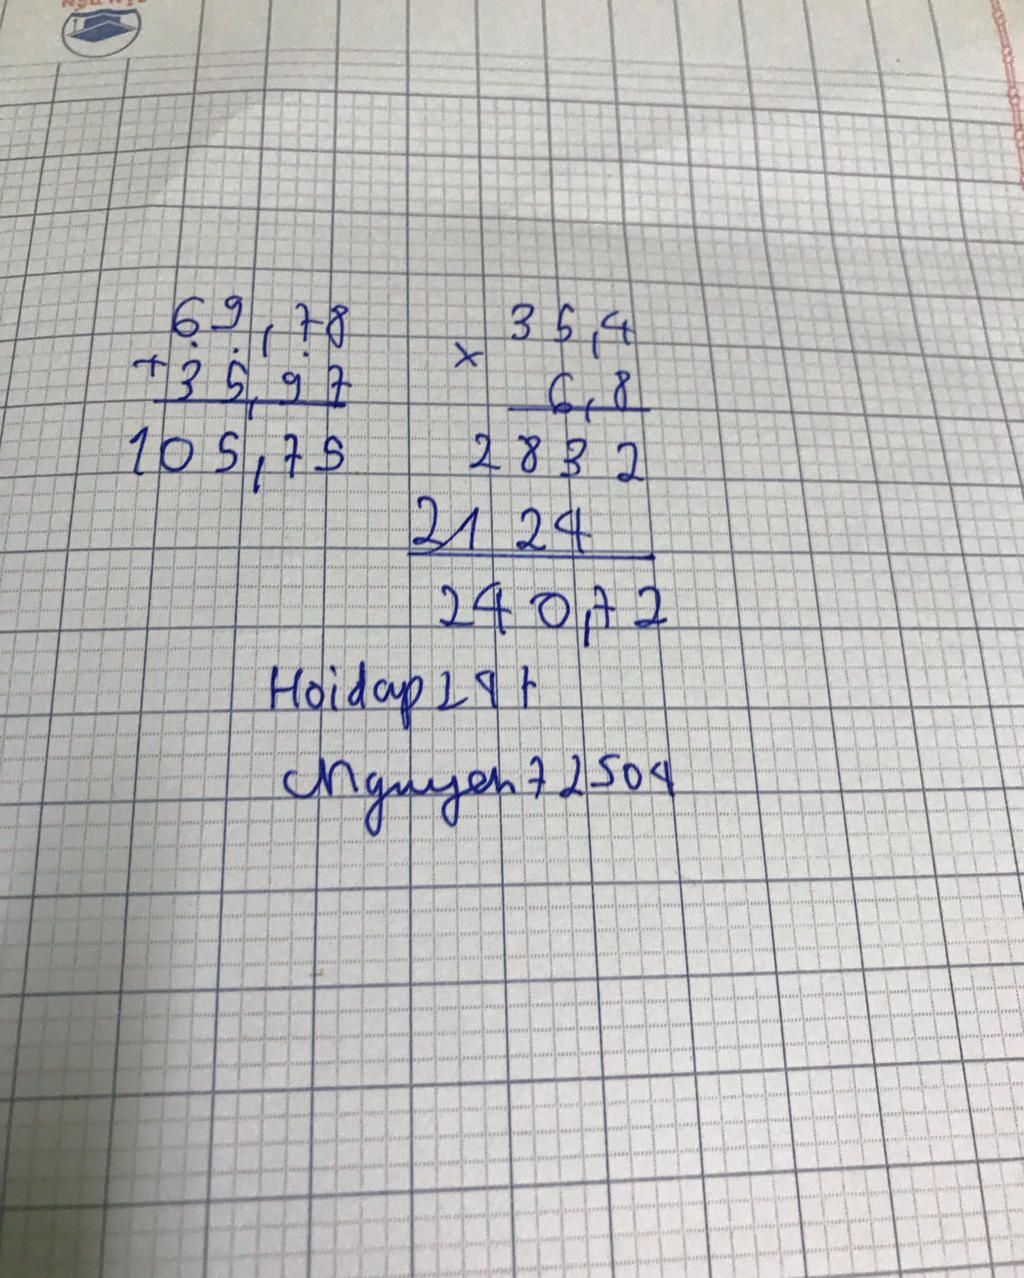 69,78
+35,97
105,75
35,4
×
6,8
2832
2124
240,72
Hoidap247
Nguyen72504